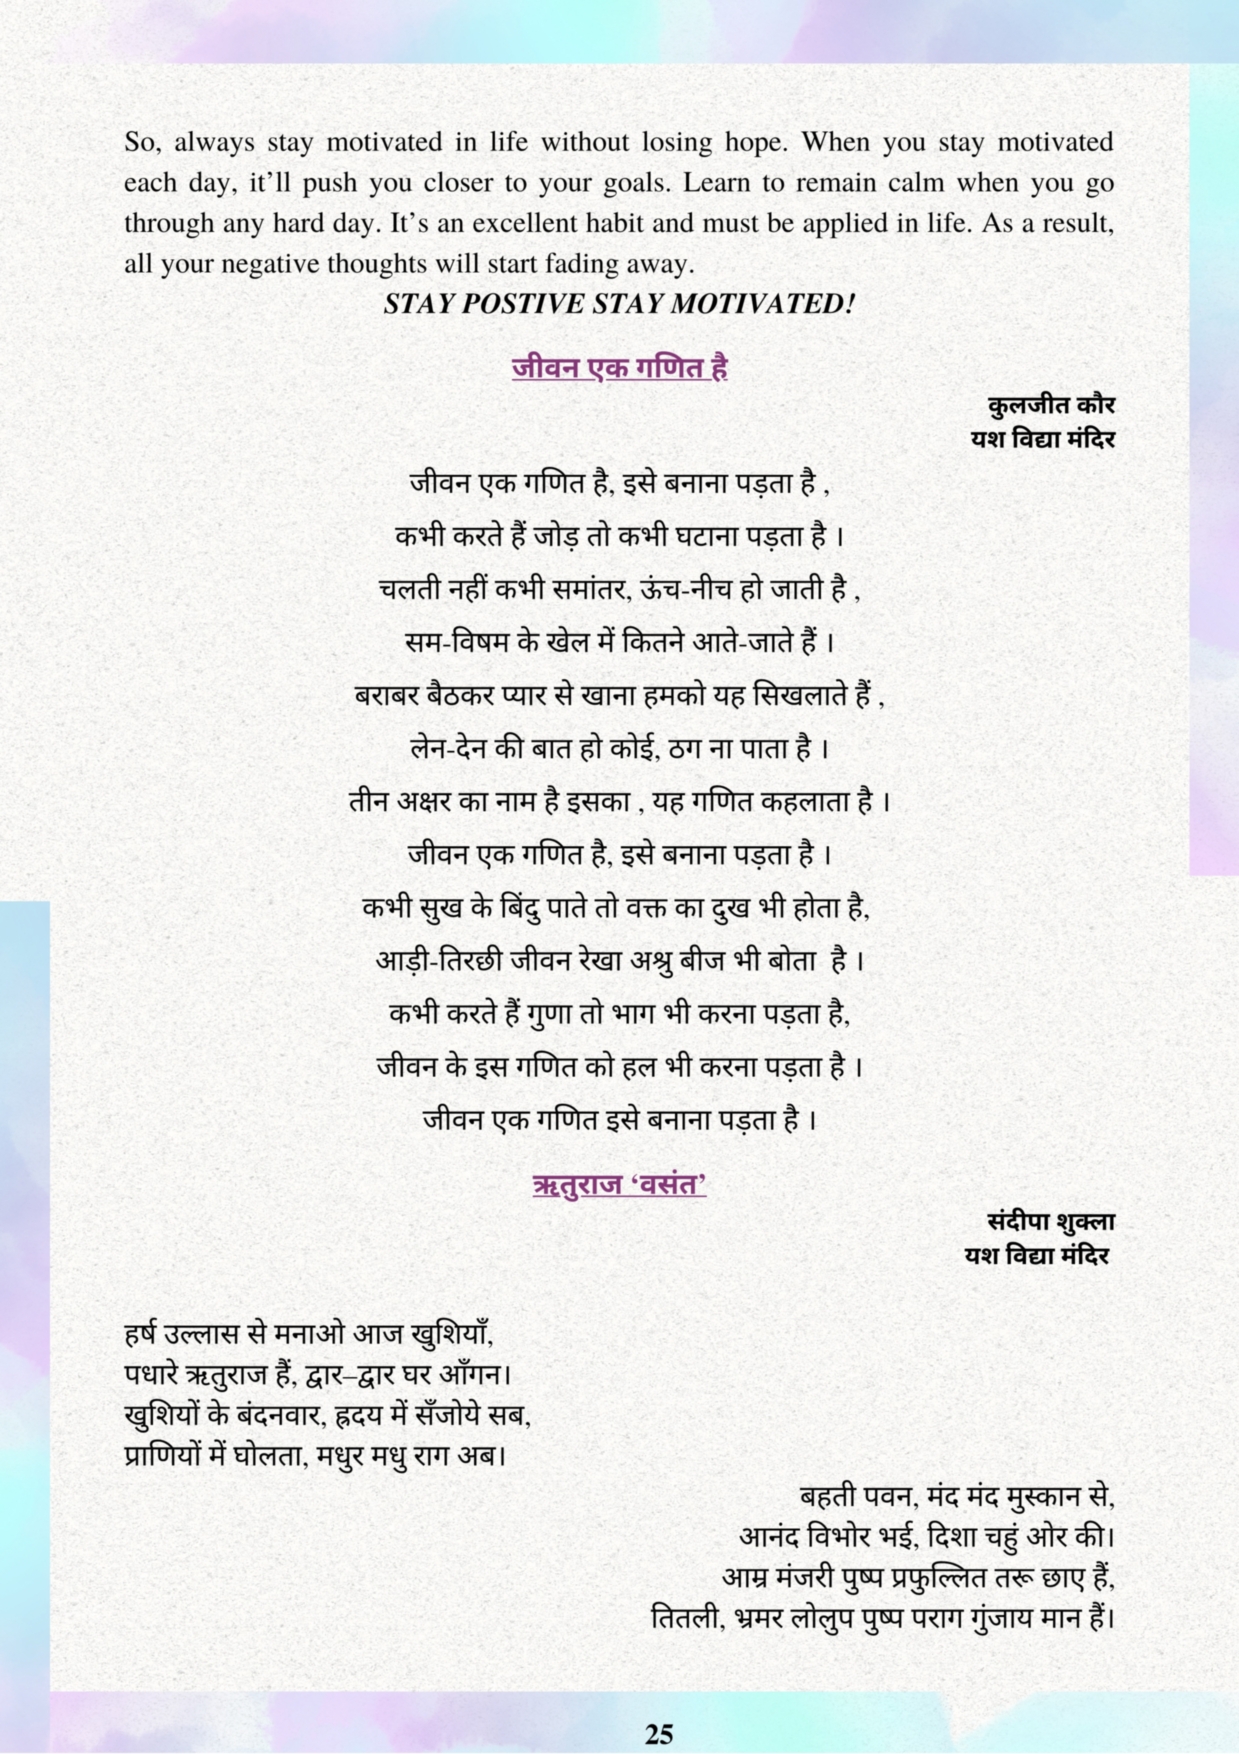 So, always stay motivated in life without losing hope. When you stay motivated
each day, it’ll push you closer to your goals. Learn to remain calm when you go
through any hard day. It’s an excellent habit and must be applied in life. As a result,
all your negative thoughts will start fading away.
STAY POSTIVE STAY MOTIVATED!
जीवन एक गणित है
कुलजीत कौर
यश विद्या मंदिर
जीवन एक गणित है, इसे बनाना पड़ता है ,
कभी करते हैं जोड़ तो कभी घटाना पड़ता है ।
चलती नहीं कभी समांतर, ऊंच-नीच हो जाती है ,
सम-विषम के खेल में कितने आते-जाते हैं ।
बराबर बैठकर प्यार से खाना हमको यह सिखलाते हैं ,
लेन-देन की बात हो कोई, ठग ना पाता है ।
तीन अक्षर का नाम है इसका , यह गणित कहलाता है ।
जीवन एक गणित है, इसे बनाना पड़ता है ।
कभी सुख के बिंदु पाते तो वक्त का दुख भी होता है,
आड़ी-तिरछी जीवन रेखा अश्रु बीज भी बोता है ।
कभी करते हैं गुणा तो भाग भी करना पड़ता है,
जीवन के इस गणित को हल भी करना पड़ता है ।
जीवन एक गणित इसे बनाना पड़ता है ।
ऋतुराज ‘वसंत’
संदीपा शुक्ला
यश विद्या मंदिर
हर्ष उल्लास से मनाओ आज खुशियाँ,
पधारे ऋतुराज हैं, द्वार–द्वार घर आँगन।
खुशियों के बंदनवार, ह्रदय में सँजोये सब,
प्राणियों में घोलता, मधुर मधु राग अब।
बहती पवन, मंद मंद मुस्कान से,
आनंद विभोर भई, दिशा चहुं ओर की।
आम्र मंजरी पुष्प प्रफुल्लित तरू छाए हैं,
तितली, भ्रमर लोलुप पुष्प पराग गुंजाय मान हैं।
25